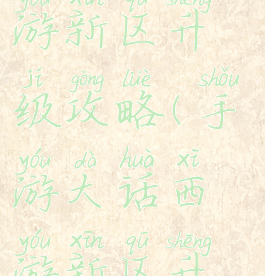 yóu xīn qū shēng
游新区升
jí gōng lüè shǒu
级攻略(手
yóu dà huà xī
游大话西
yóu xīn qū shēng
游新区升